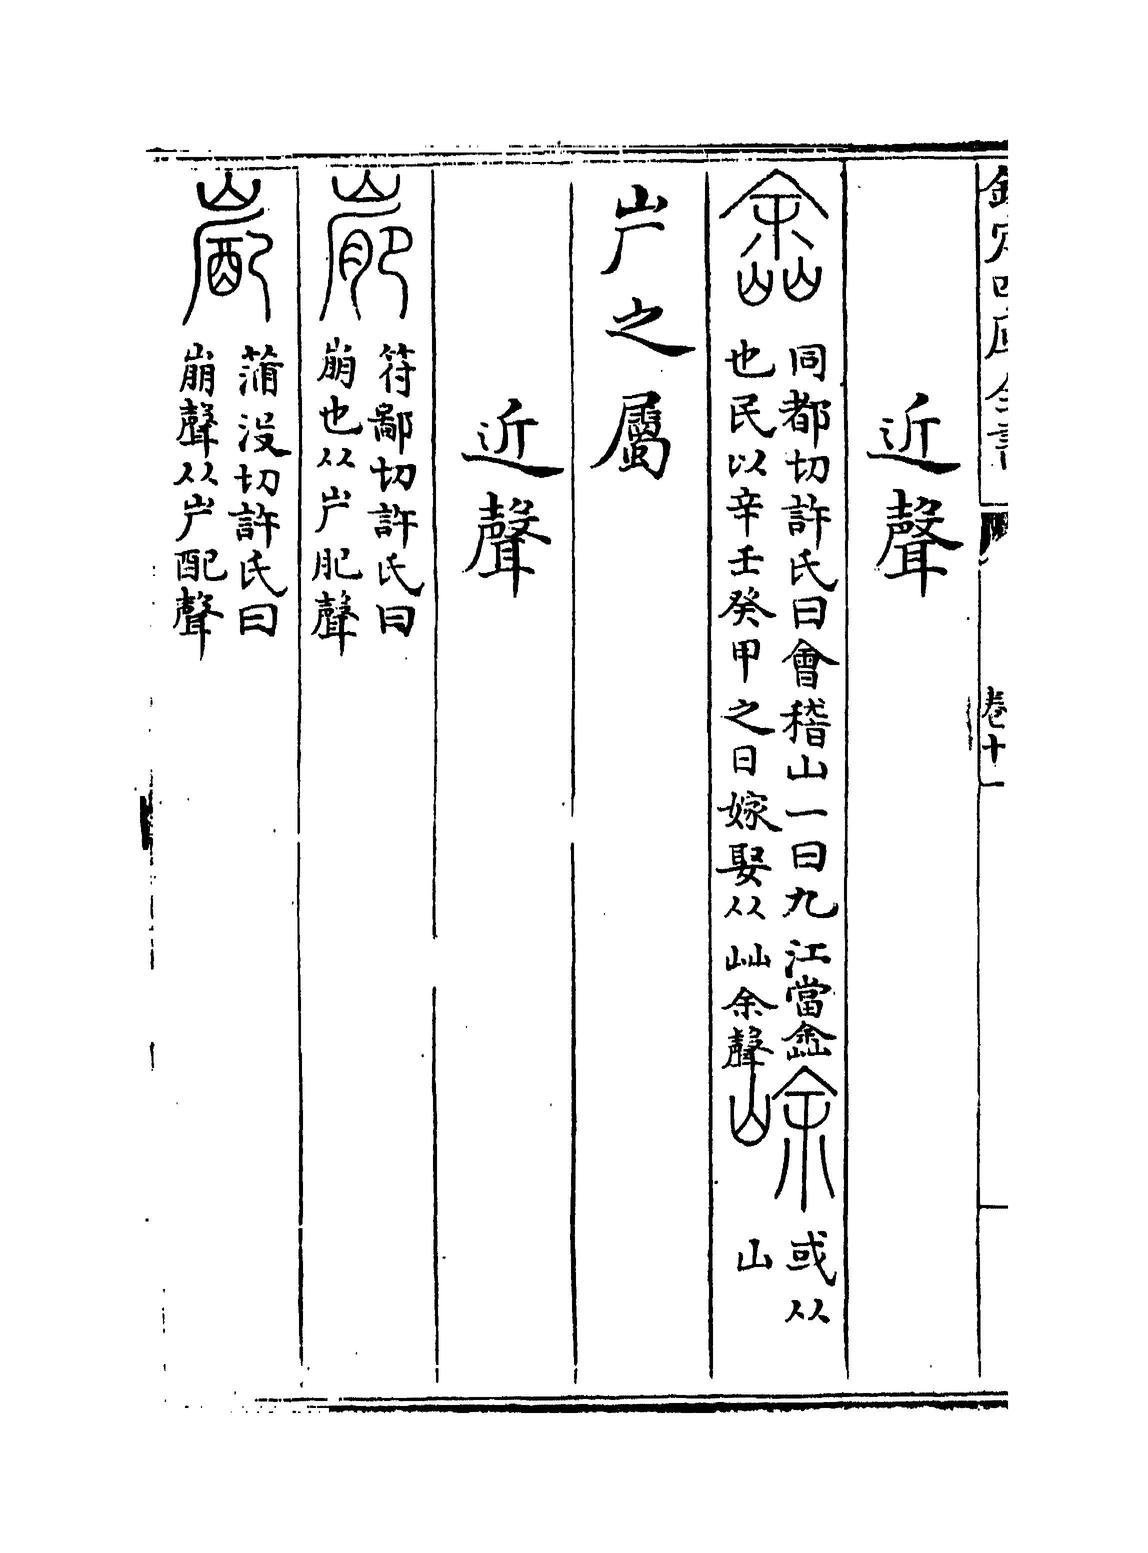 欽定四庫全書
卷十一
近聲
嵞 同都切許氏曰會稽山一曰九江當嵞
也民以辛壬癸甲之日嫁娶从屾余聲
嵞 或从
山
屵之屬
近聲
符鄙切許氏曰
崩也从屵肥聲
蒲没切許氏曰
崩聲从屵配聲